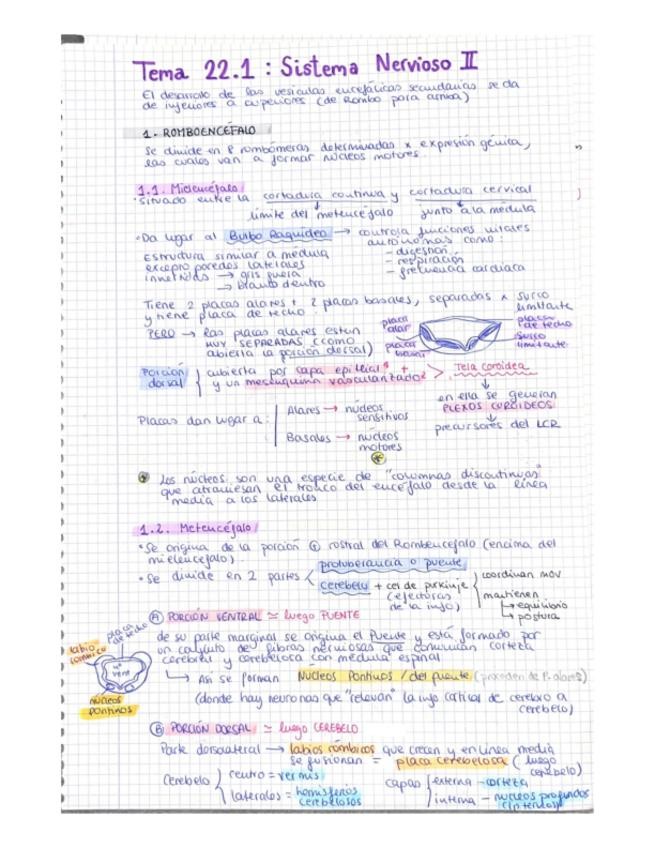 Tema 22.1 : Sistema Nervioso II
El desarrollo de las vesículas encefálicas secundarias se da
de inferiores a superiores (de Rombo para arriba)
1. ROMBOENCÉFALO
Se divide en 8 rombómeras determinadas x expresión génica,
las cuales van a formar núcleos motores.
1.1. Mielencéfalo
· situado entre la cortadura continua y cortadura cervical
límite del metencéfalo junto a la médula
· Da lugar al Bulbo Raquídeo → controla funciones vitales
autónomas como:
Estructura similar a médula
excepto paredes laterales
invertidas → gris fuera
→ blanco dentro
- digestión
- respiración
- frecuencia cardiaca
Tiene 2 placas alares + 2 placas basales, separadas x surco
limitante
y tiene placa de techo.
PERO → las placas alares están
MUY SEPARADAS (como
abierta la porción dorsal)
placa
alar
placa
basal
placa
de techo
Surco
limitante
Porción
dorsal
cubierta por capa epitelial +
y un mesénquima vascularizado > Tela coroidea
en ella se generan
PLEXOS COROIDEOS
precursores del LCR
Placas dan lugar a:
Alares → núcleos
sensitivos
Basales → núcleos
motores
Los núcleos son una especie de "columnas discontinuas"
que atraviesan el tronco del encéfalo desde la línea
media a los laterales
1.2. Metencéfalo
· Se origina de la porción + rostral del Rombencéfalo (encima del
mielencéfalo).
· Se divide en 2 partes
protuberancia o puente
cerebelo + cel de purkinje
(efectoras
de la info)
coordinan mov
mantienen
→ equilibrio
→ postura
A PORCIÓN VENTRAL ≃ luego PUENTE
de su parte marginal se origina el Puente y está formado por
un conjunto de fibras nerviosas que comunican corteza
cerebral y cerebelosa con médula espinal
→ Así se forman Núcleos Pontinos / del puente (proceden de P. alares)
(donde hay neuronas que "relevan" la info cortical de cerebro a
cerebelo)
placa
de techo
labio
rómbico
4º
vent
núcleos
pontinos
B PORCIÓN DORSAL ≃ luego CEREBELO
Parte dorsolateral → labios rómbicos que crecen y en línea media
se fusionan = placa cerebelosa (luego
cerebelo)
Cerebelo
centro = vermis
laterales = hemisferios
cerebelosos
capas
externa - corteza
interna - núcleos profundos